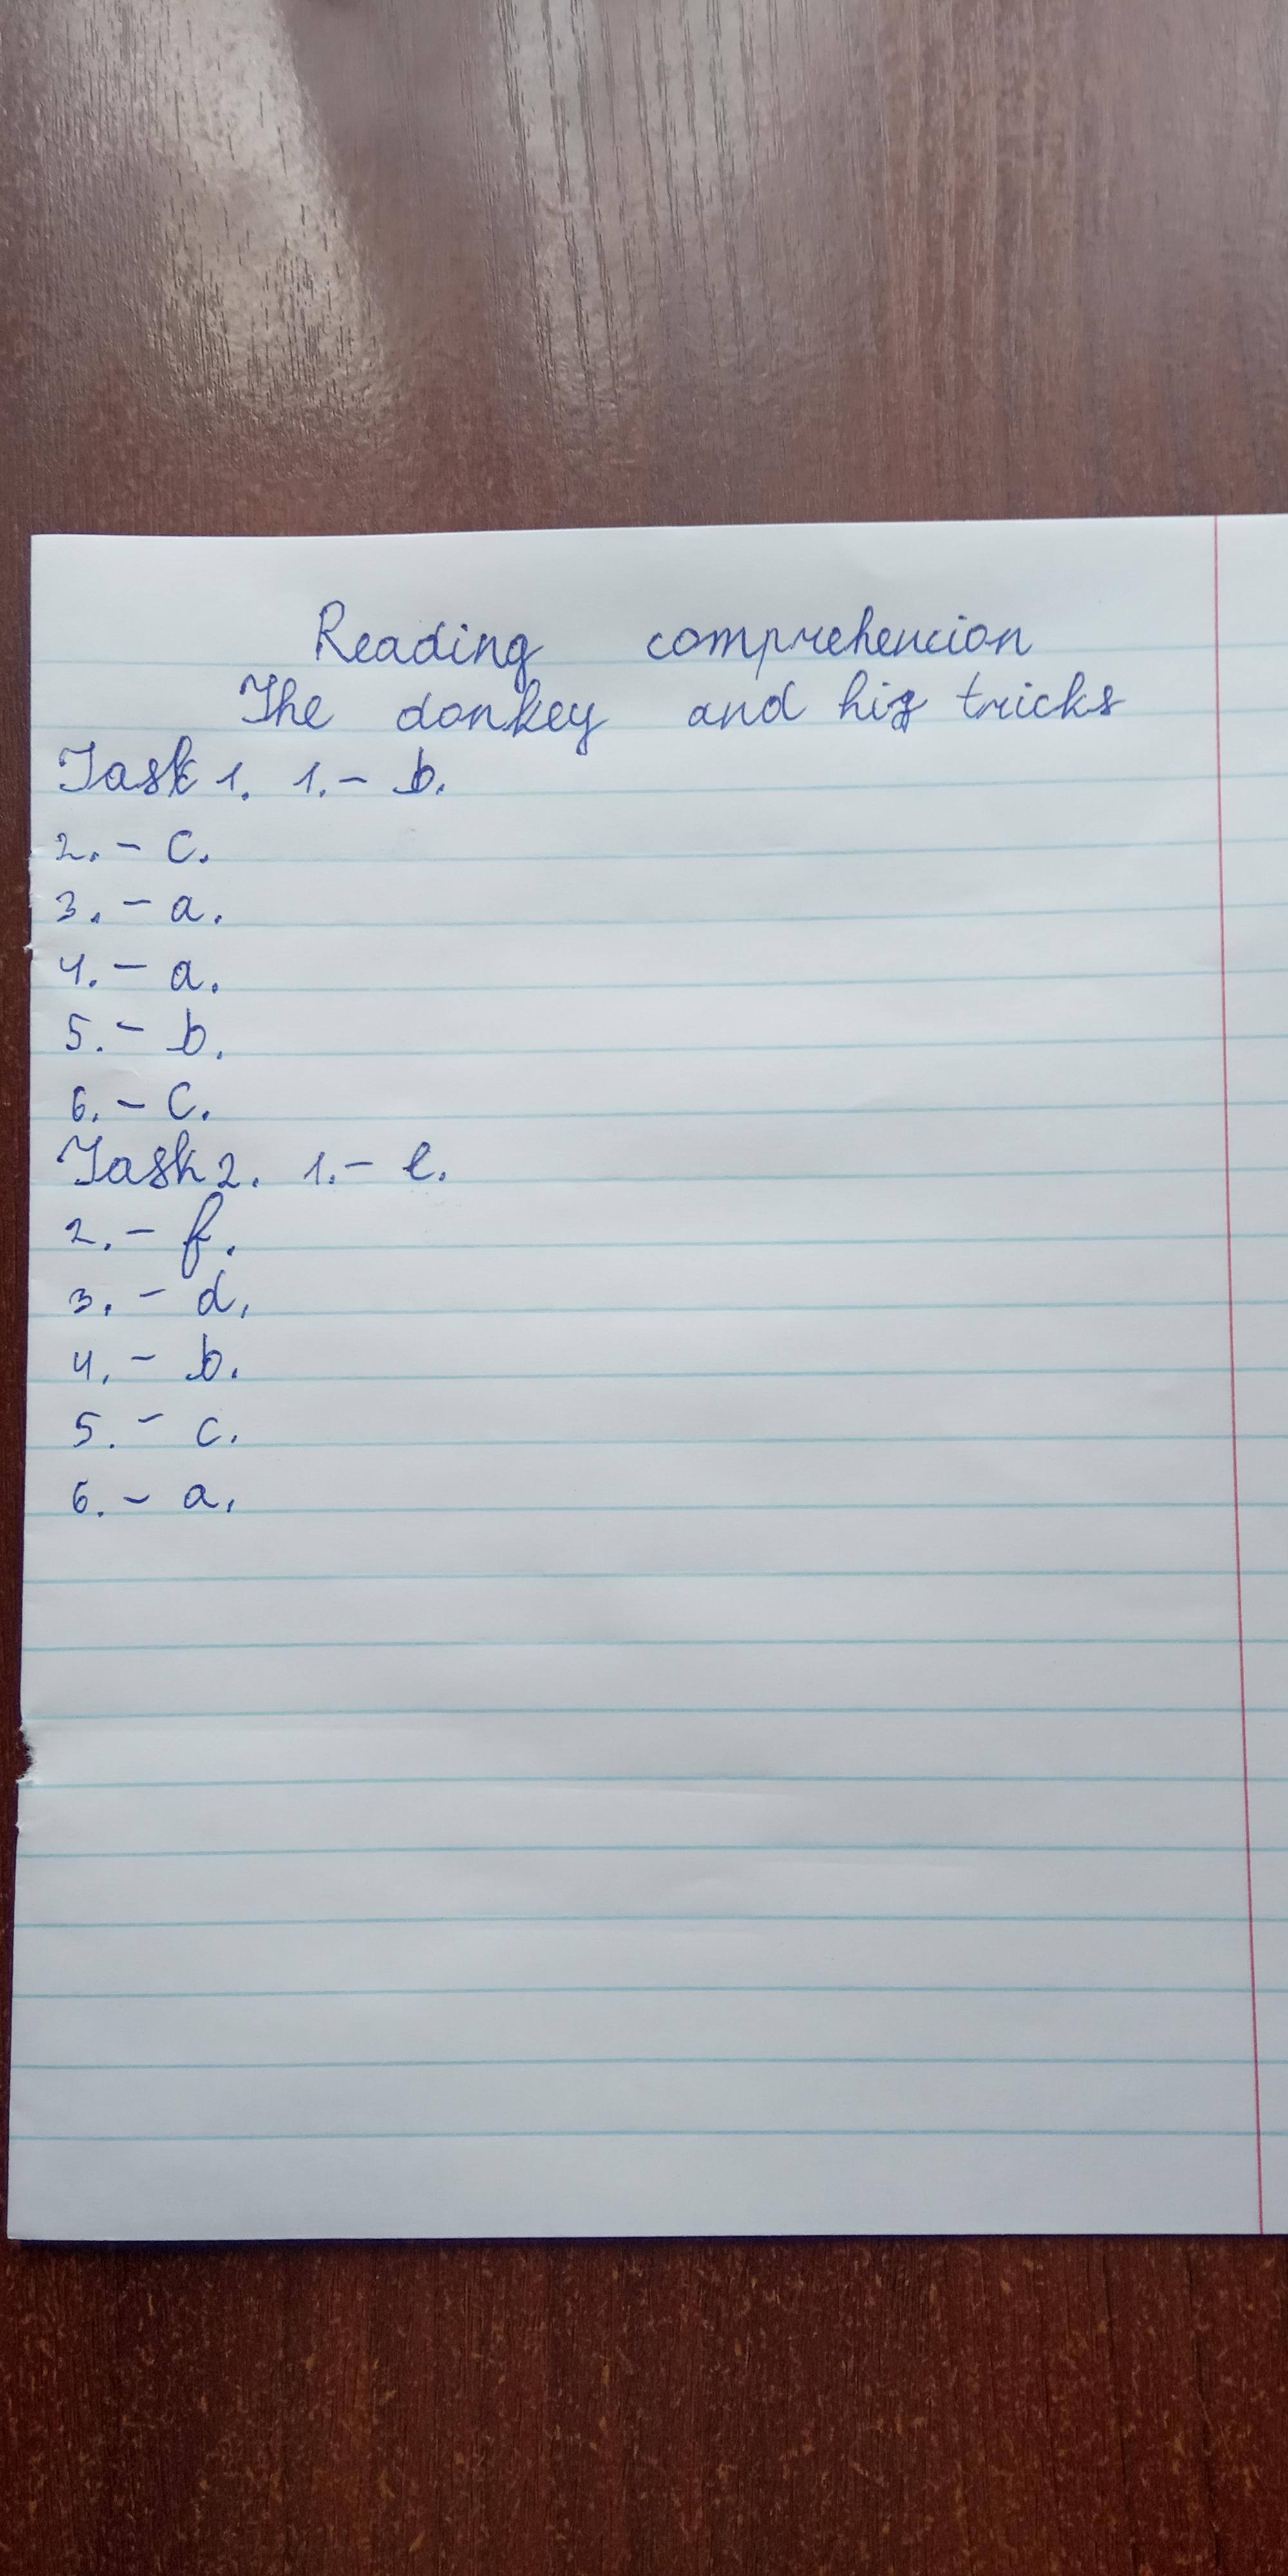 Reading comprehencion
The donkey and his tricks
Task 1. 1. - b.
2. - c.
3. - a.
4. - a.
5. - b.
6. - c.
Task 2. 1. - e.
2. - f.
3. - d.
4. - b.
5. - c.
6. - a.